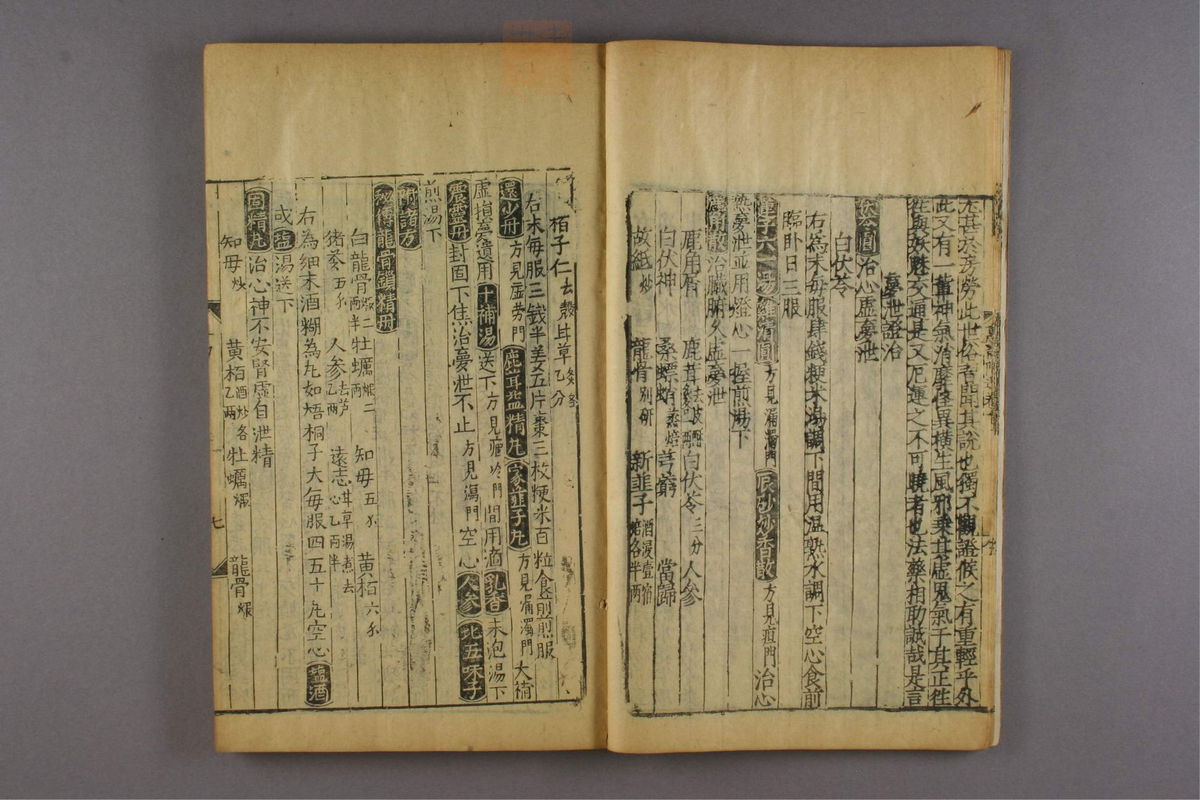 尤甚於房勞此世俗皆聞其說也獨不觀證候之有重輕乎外
此又有一種神氣消靡怪異橫生風邪乘其虛鬼氣干其正往
往與妖魅交通是又厄運之不可曉者也法藥相助誠哉是言
夢泄證治
苓圓治心虛夢泄
白伏苓
右為末每服肆錢粳米湯調下間用温熟水調下空心食前
臨卧日三服
蓮子六一湯 清圓方見漏濁門 辰砂妙香散方見門治心
熱夢泄並用燈心一握煎湯下
鹿角散治臟腑久虛夢泄
鹿角屑 鹿茸去皮酥炙 白伏苓三分 人參
白伏神 桑螵蛸蒸焙 芎藭 當歸
故紙炒 龍骨別研 新韭子酒浸壹宿焙各半兩
栢子仁去殼 甘草炙各乙分
右末每服三錢半姜五片棗三枚粳米百粒食前煎服
還少丹方見虛勞門 鹿茸益精丸 家韭子丸方見漏濁門大補
虛損夢遺用十補湯送下方見瘧門間用滴乳香末泡湯下
震靈丹封固下焦治夢泄不止方見瀉門空心人參北五味子
煎湯下
附諸方
秘傳龍骨鎖精丹
白龍骨煅二兩半 牡蠣煅二兩 知母五 黃栢六
猪苓五 人參去芦乙兩 遠志甘草湯煮去心乙兩半
右為細末酒糊為丸如梧桐子大每服四五十丸空心塩酒
或塩湯送下
固精丸治心神不安腎虛自泄精
知母炒 黃栢酒炒各乙兩 牡蠣煅 龍骨煅